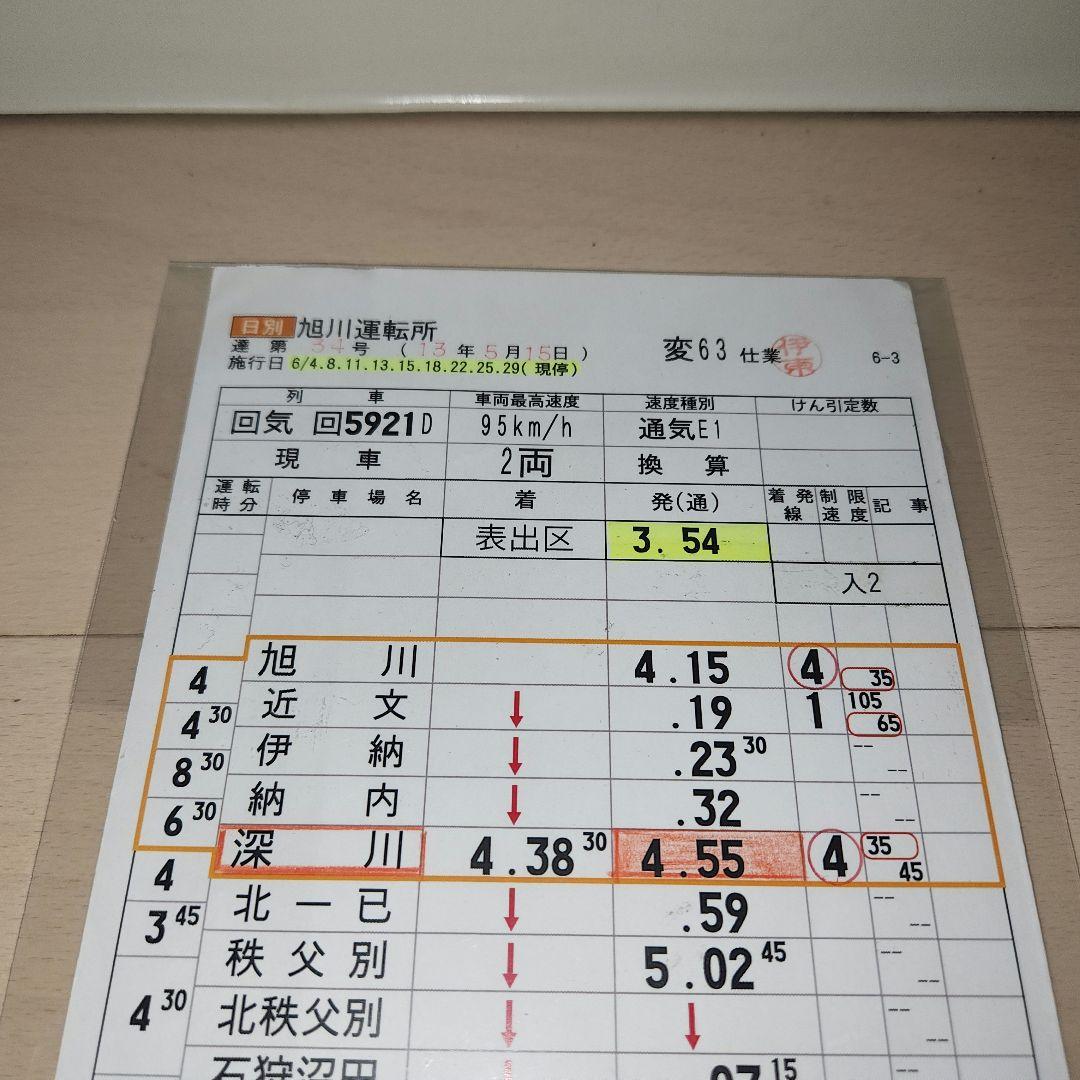 日別 旭川運転所
達 第 34 号 ( 13 年 5 月 15 日 )
施行日 6/4.8.11.13.15.18.22.25.29(現停)
変63 仕業 伊東 6-3
列 車 車両最高速度 速度種別 けん引定数
回気 回5921D 95km/h 通気E1
現 車 2両 換 算
運転時分 停車場名 着 発(通) 着発線 制限速度 記事
表出区 3.54
入2
旭 川 4.15 4 35
4
近 文 ↓ .19 1 105 65
4 30
伊 納 ↓ .23 30 -- --
8 30
納 内 ↓ .32 -- --
6 30
深 川 4.38 30 4.55 4 35 45
4
北 一 已 ↓ .59 -- --
3 45
秩 父 別 ↓ 5.02 45 -- --
4 30
北秩父別 ↓ ↓ -- --
石狩沼田 .07 15